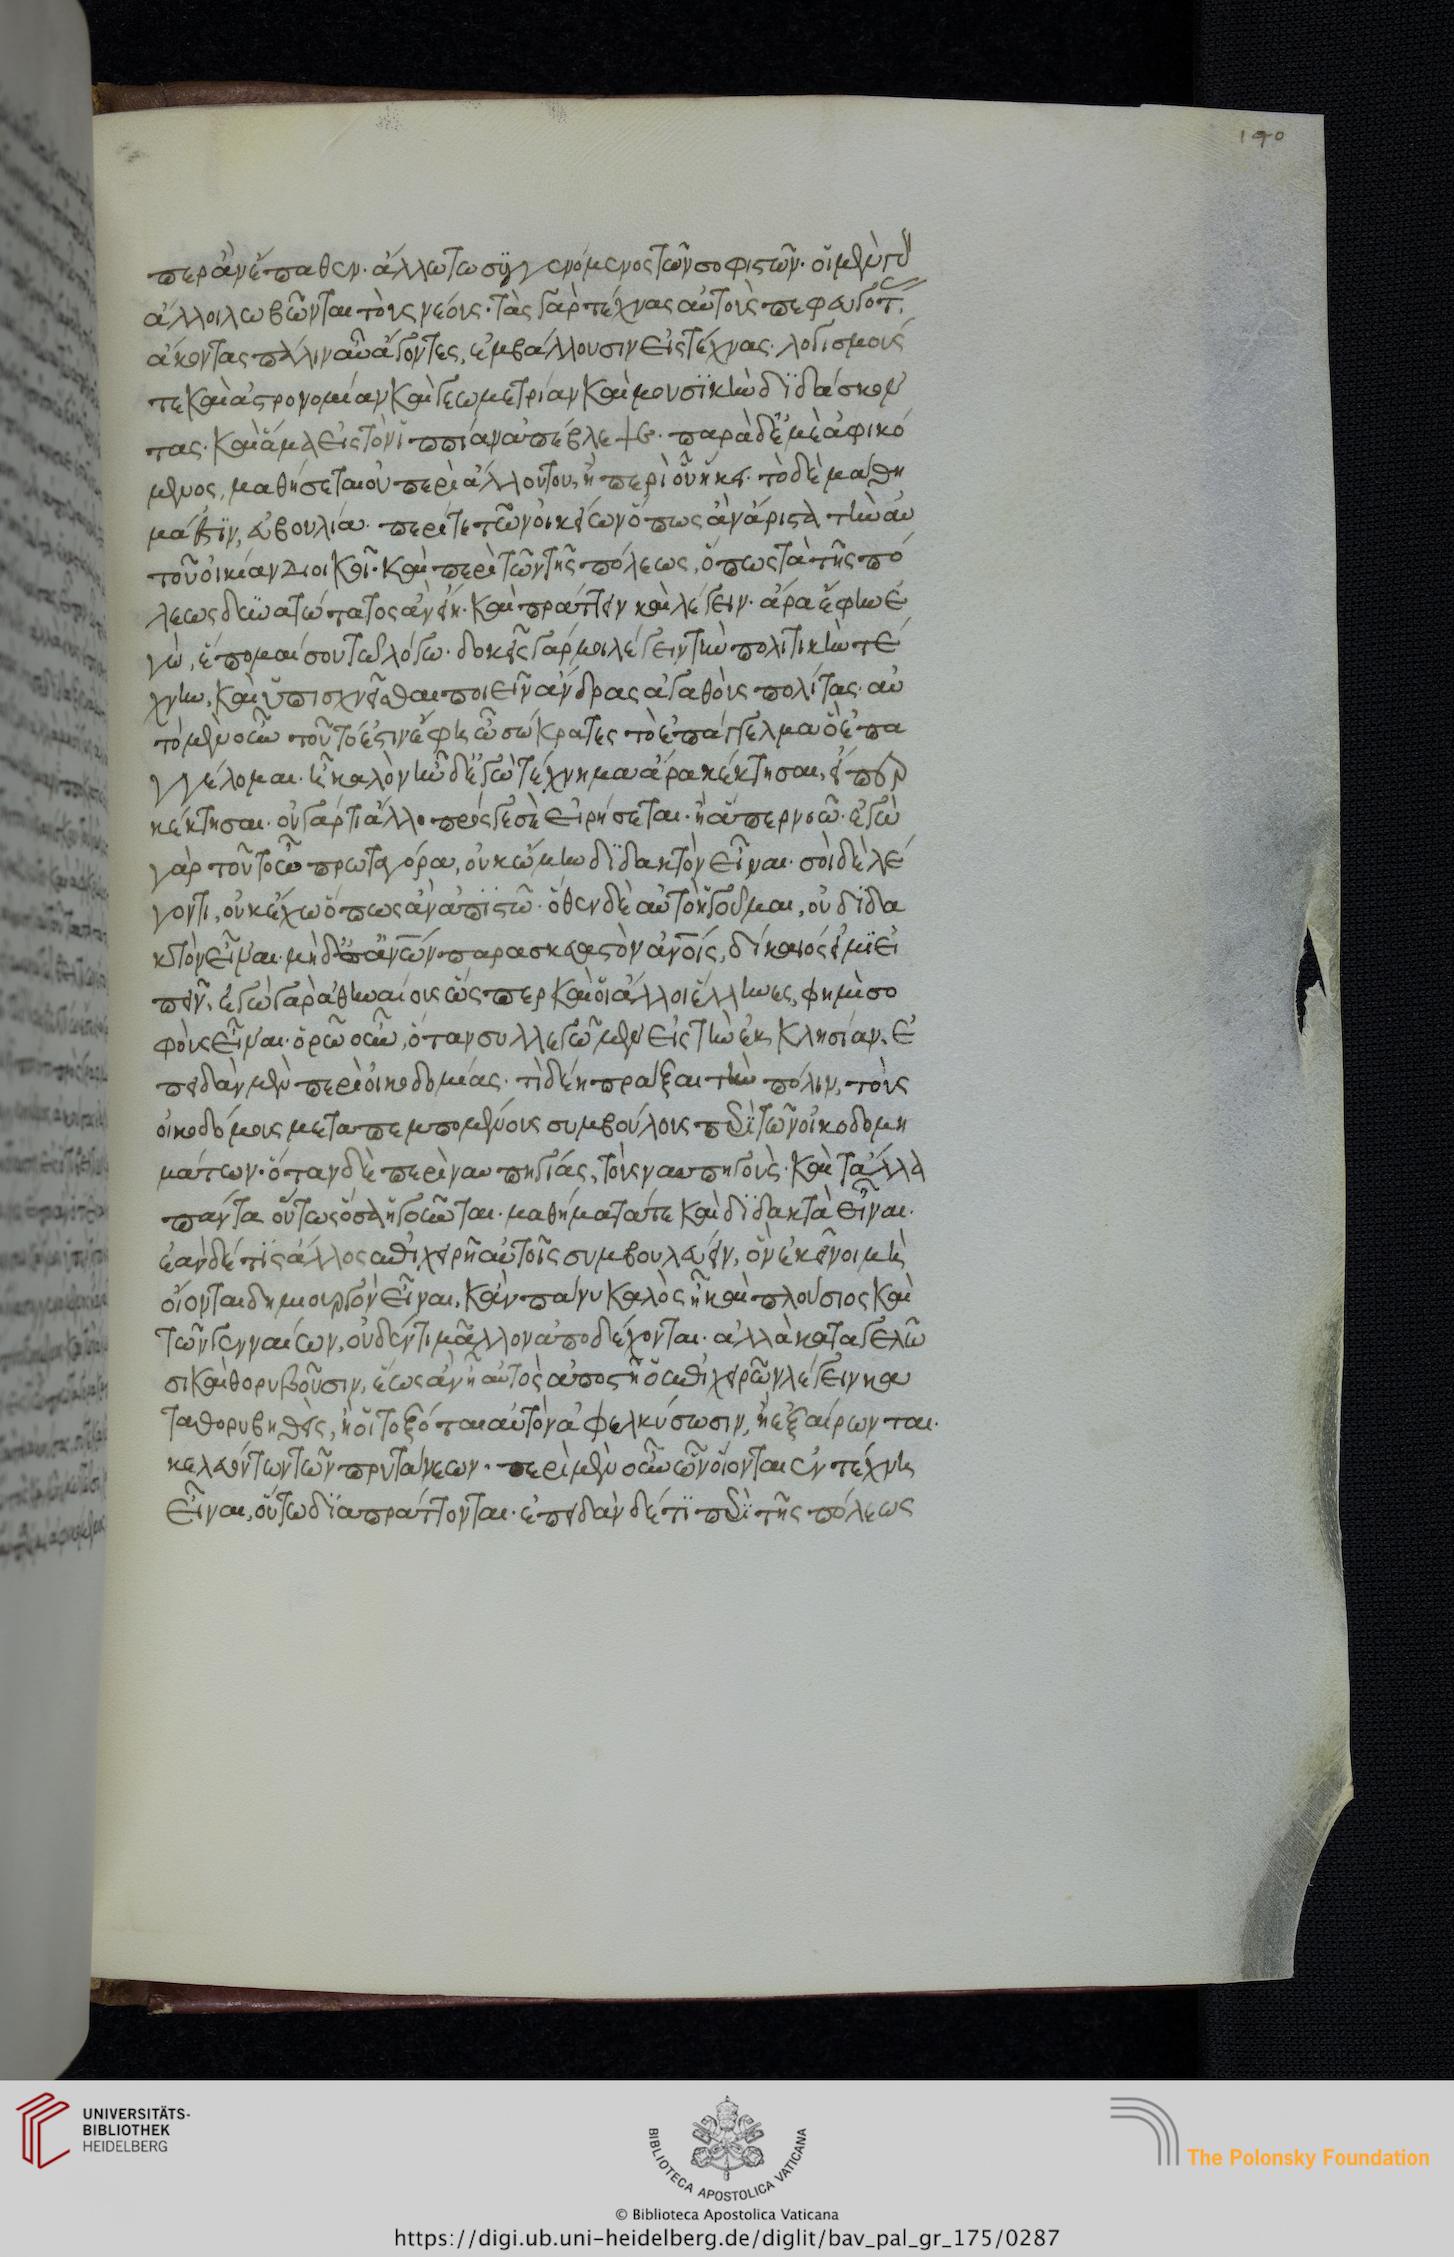 190
περ ἂν ἔπαθεν· ἄλλω τω συγγενόμενος τῶν σοφιστῶν· οἱ μὲν γὰρ
ἄλλοι λωβῶνται τοὺς νέους· τὰς γὰρ τέχνας αὐτοὺς πεφευγότας
ἄκοντας πάλιν αὖ ἄγοντες, ἐμβάλλουσιν εἰς τέχνας· λογισμούς
τε καὶ ἀστρονομίαν καὶ γεωμετρίαν καὶ μουσϊκὴν δϊδάσκον
τας· καὶ ἅμα εἰς τὸν ἱππίαν ἀπέβλεψε· παρὰ δ' ἐμὲ ἀφικό
μενος, μαθήσεται οὐ περὶ ἄλλου του, ἢ περὶ οὗ ἥκει· τὸ δὲ μάθη
μά ἐστϊν, εὐβουλία· περί τε τῶν οἰκείων ὅπως ἂν ἄριστα τὴν αὑ
τοῦ οἰκίαν διοικῆ· καὶ περὶ τῶν τῆς πόλεως, ὅπως τὰ τῆς πό
λεως δυνατώτατος ἂν εἴη· καὶ πράττειν καὶ λέγειν· ἆρα ἔφην ἐ
γὼ, ἕπομαί σου τῶ λόγω· δοκεῖς γάρ μοι λέγειν τὴν πολιτικὴν τέ
χνην, καὶ ὑπισχνεῖσθαι ποιεῖν ἄνδρας ἀγαθοὺς πολίτας· αὐ
τὸ μὲν οὖν τοῦτό ἐστιν ἔφη ὦ σώκρατες τὸ ἐπάγγελμα ὃ ἐπα
γγέλομαι· ἦ καλὸν ἦν δ' ἐγὼ τέχνημα ἄρα κέκτησαι, εἴπερ
κέκτησαι· οὐ γάρ τι ἄλλο πρός γε σὲ εἰρήσεται· ἢ ἅπερ νοῶ· ἐγὼ
γὰρ τοῦτο ὦ πρωταγόρα, οὐκ ὤμην δϊδακτὸν εἶναι· σοὶ δὲ λέ
γοντι, οὐκ ἔχω ὅπως ἂν ἀπϊστῶ· ὅθεν δὲ αὐτὸ ἡγοῦμαι, οὐ δϊδα
κτὸν εἶναι· μὴ δ' ὑπ' ἀνων παρασκευαστὸν ἀνοις, δίκαιός εἰμϊ εἰ
πεῖν, ἐγὼ γὰρ ἀθηναίους ὥσπερ καὶ οἱ ἄλλοι ἕλληνες, φημὶ σο
φοὺς εἶναι· ὁρῶ οὖν, ὅταν συλλεγῶμεν εἰς τὴν ἐκκλησίαν, ἐ
πειδὰν μὲν περὶ οἰκοδομίας· τὶ δέη πρᾶξαι τὴν πόλιν, τοὺς
οἰκοδόμους μεταπεμπομένους συμβούλους περὶ τῶν οἰκοδομη
μάτων· ὅταν δὲ περὶ ναυπηγίας, τοὺς ναυπηγοὺς· καὶ τἄλλα
πάντα οὕτως ὅσα ἡγοῦνται· μαθήματά τε καὶ δϊδακτὰ εἶναι·
ἐὰν δέ τϊς ἄλλος ἐπιχειρῆ αὐτοῖς συμβουλεύειν, ὃν ἐκεῖνοι μὴ
οἴονται δημιουργὸν εἶναι, κἂν πάνυ καλὸς ἦ καὶ πλούσιος καὶ
τῶν γενναίων, οὐδέν τι μᾶλλον ἀποδέχονται· ἀλλὰ καταγελῶ
σι καὶ θορυβοῦσιν, ἕως ἂν ἢ αὐτὸς ἀποστῆ ὁ ἐπιχειρῶν λέγειν κα
ταθορυβηθεὶς, ἢ οἱ τοξόται αὐτὸν ἀφελκύσωσιν, ἢ ἐξαίρωνται·
κελευόντων τῶν πρυτάνεων· περὶ μὲν οὖν ὧν οἴονται ἐν τέχνη
εἶναι, οὕτω δϊαπράττονται· ἐπειδὰν δέ τϊ περὶ τῆς πόλεως
UNIVERSITÄTS-
BIBLIOTHEK
HEIDELBERG
BIBLIOTECA APOSTOLICA VATICANA
The Polonsky Foundation
© Biblioteca Apostolica Vaticana
https://digi.ub.uni-heidelberg.de/diglit/bav_pal_gr_175/0287